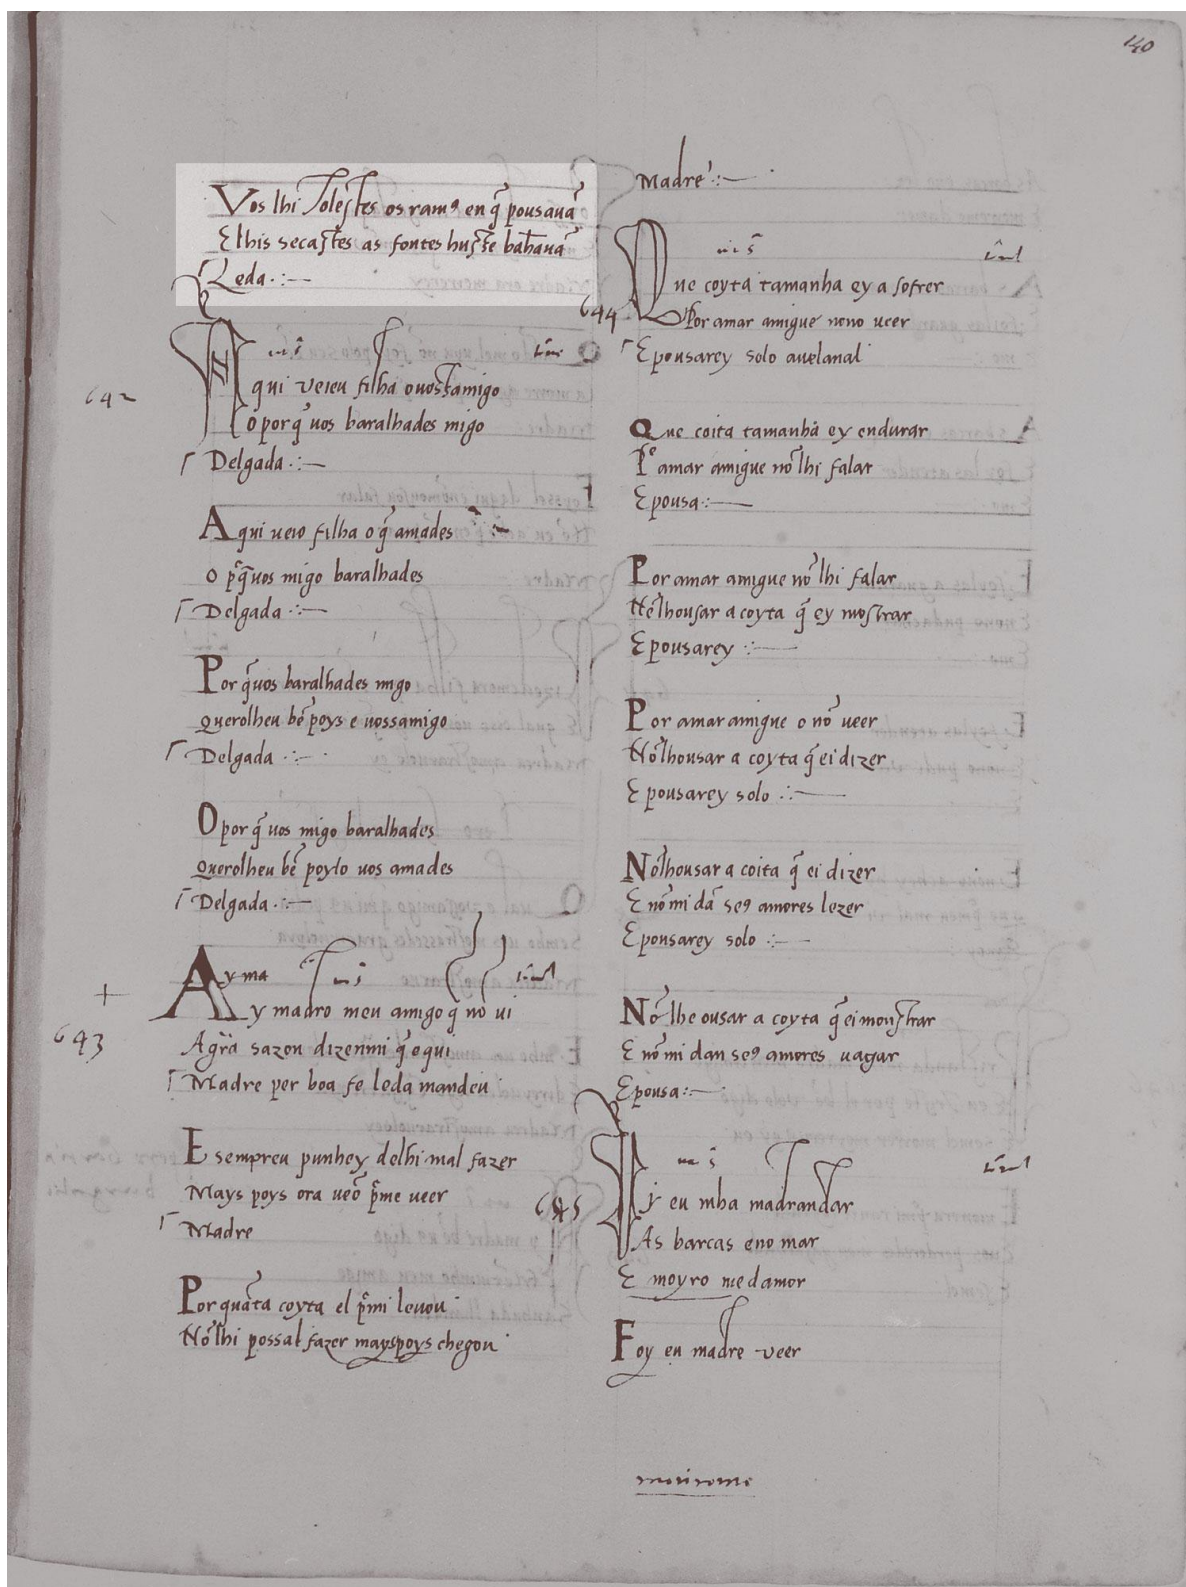 140
Vos lhi Tolestes os ramꝯ en q̄ pousauā
E lhis secastes as fontes hu sse bahauā
Leda
642
Aqui ueieu filha o uoss amigo
o por q̄ uos baralhades migo
Delgada
Aqui ueio filha o q̄ amades
o p̄ q̄ uos migo baralhades
Delgada
Por q̄ uos baralhades migo
Querolheu bē poys e uossamigo
Delgada
O por q̄ uos migo baralhades
Querolheu bē poylo uos amades
Delgada
643
Ay ma
Ay madro meu amigo q̄ nō ui
A grā sazon dizenmi q̄ e qui
Madre per boa fe leda mandeu
E sempreu punhey delhi mal fazer
Mays poys ora ueō p̄me ueer
Madre
Por quāta coyta el p̄mi leuou
Nō lhi possal fazer mayspoys chegou
Madre
644
Que coyta tamanha ey a sofrer
Por amar amigue nono ueer
E pousarey solo auelanal
Que coita tamanha ey endurar
Pͦ amar amigue nō lhi falar
E pousa
Por amar amigue nō lhi falar
Nē lhousar a coyta q̄ ey mostrar
E pousarey
Por amar amigue o nō ueer
Nō lhousar a coyta q̄ ei dizer
E pousarey solo
Nō lhousar a coita q̄ ei dizer
E nō mi dā seꝯ amores lezer
E pousarey solo
Nō lhe ousar a coyta q̄ ei monstrar
E nō mi dan seꝯ amores uagar
E pousa
645
Vy eu mha madrandar
As barcas eno mar
E moyro me damor
Foy eu madre ueer
moirome